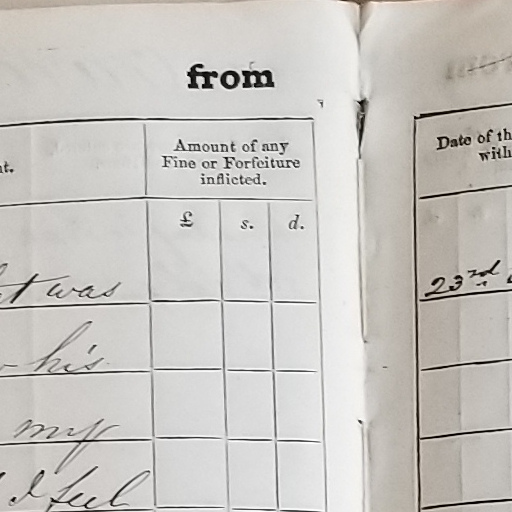 from
nt.
Amount of any
Fine or Forfeiture
inflicted.
£ s. d.
was
his
my
I feel
Date of th
with
23rd